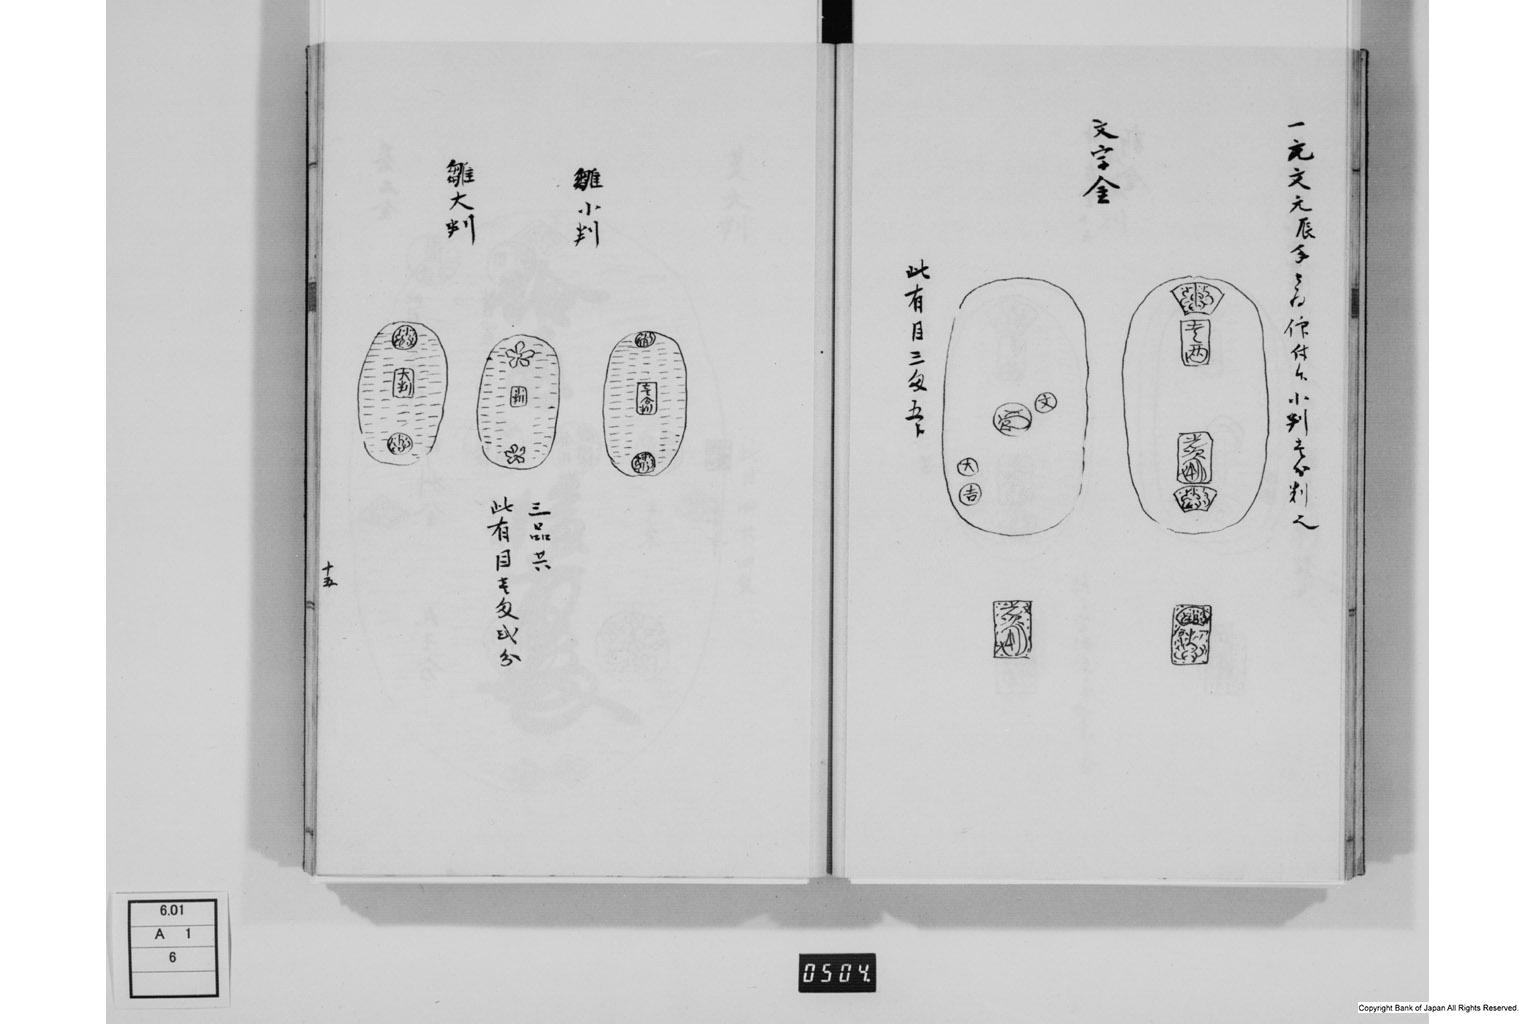 一元文元辰年被仰付候小判壱分判之
文字金
壱両
文
大
吉
此有目三匁五分
雛小判
雛大判
壱分判
小判
大判
三品共
此有目壱匁弐分
十五
6.01
A 1
6
0504
Copyright Bank of Japan All Rights Reserved.